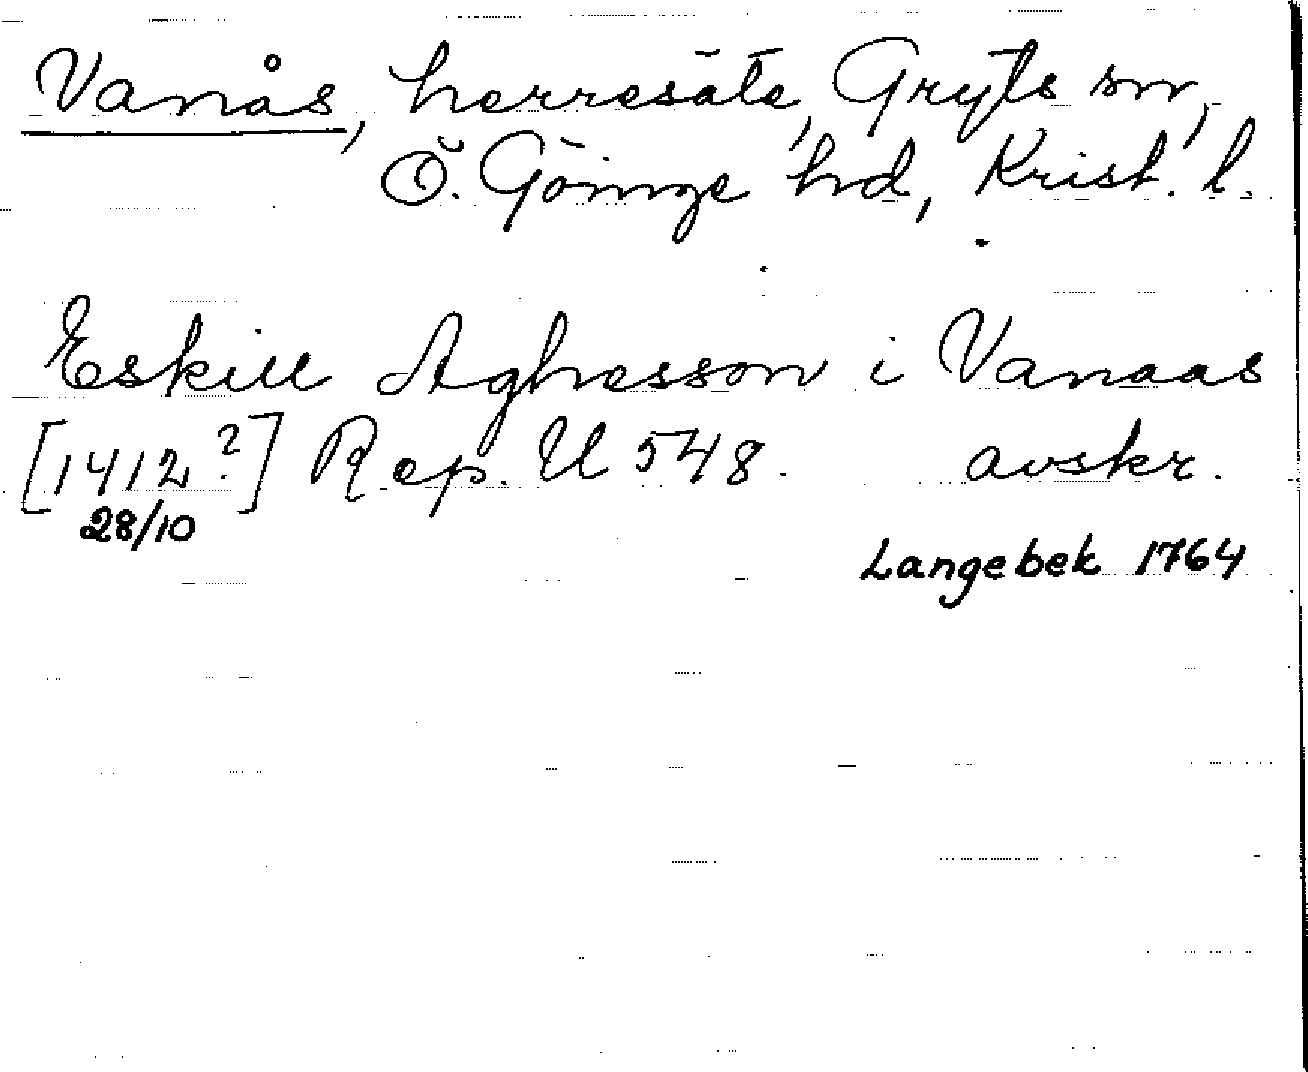 Vanås, herresäte, Gryts sn,
Ö. Göinge hd, Krist. l.
Eskill Aghesson i Vanaas
[1412?] Rep. U 548. avskr.
28/10
Langebek 1764